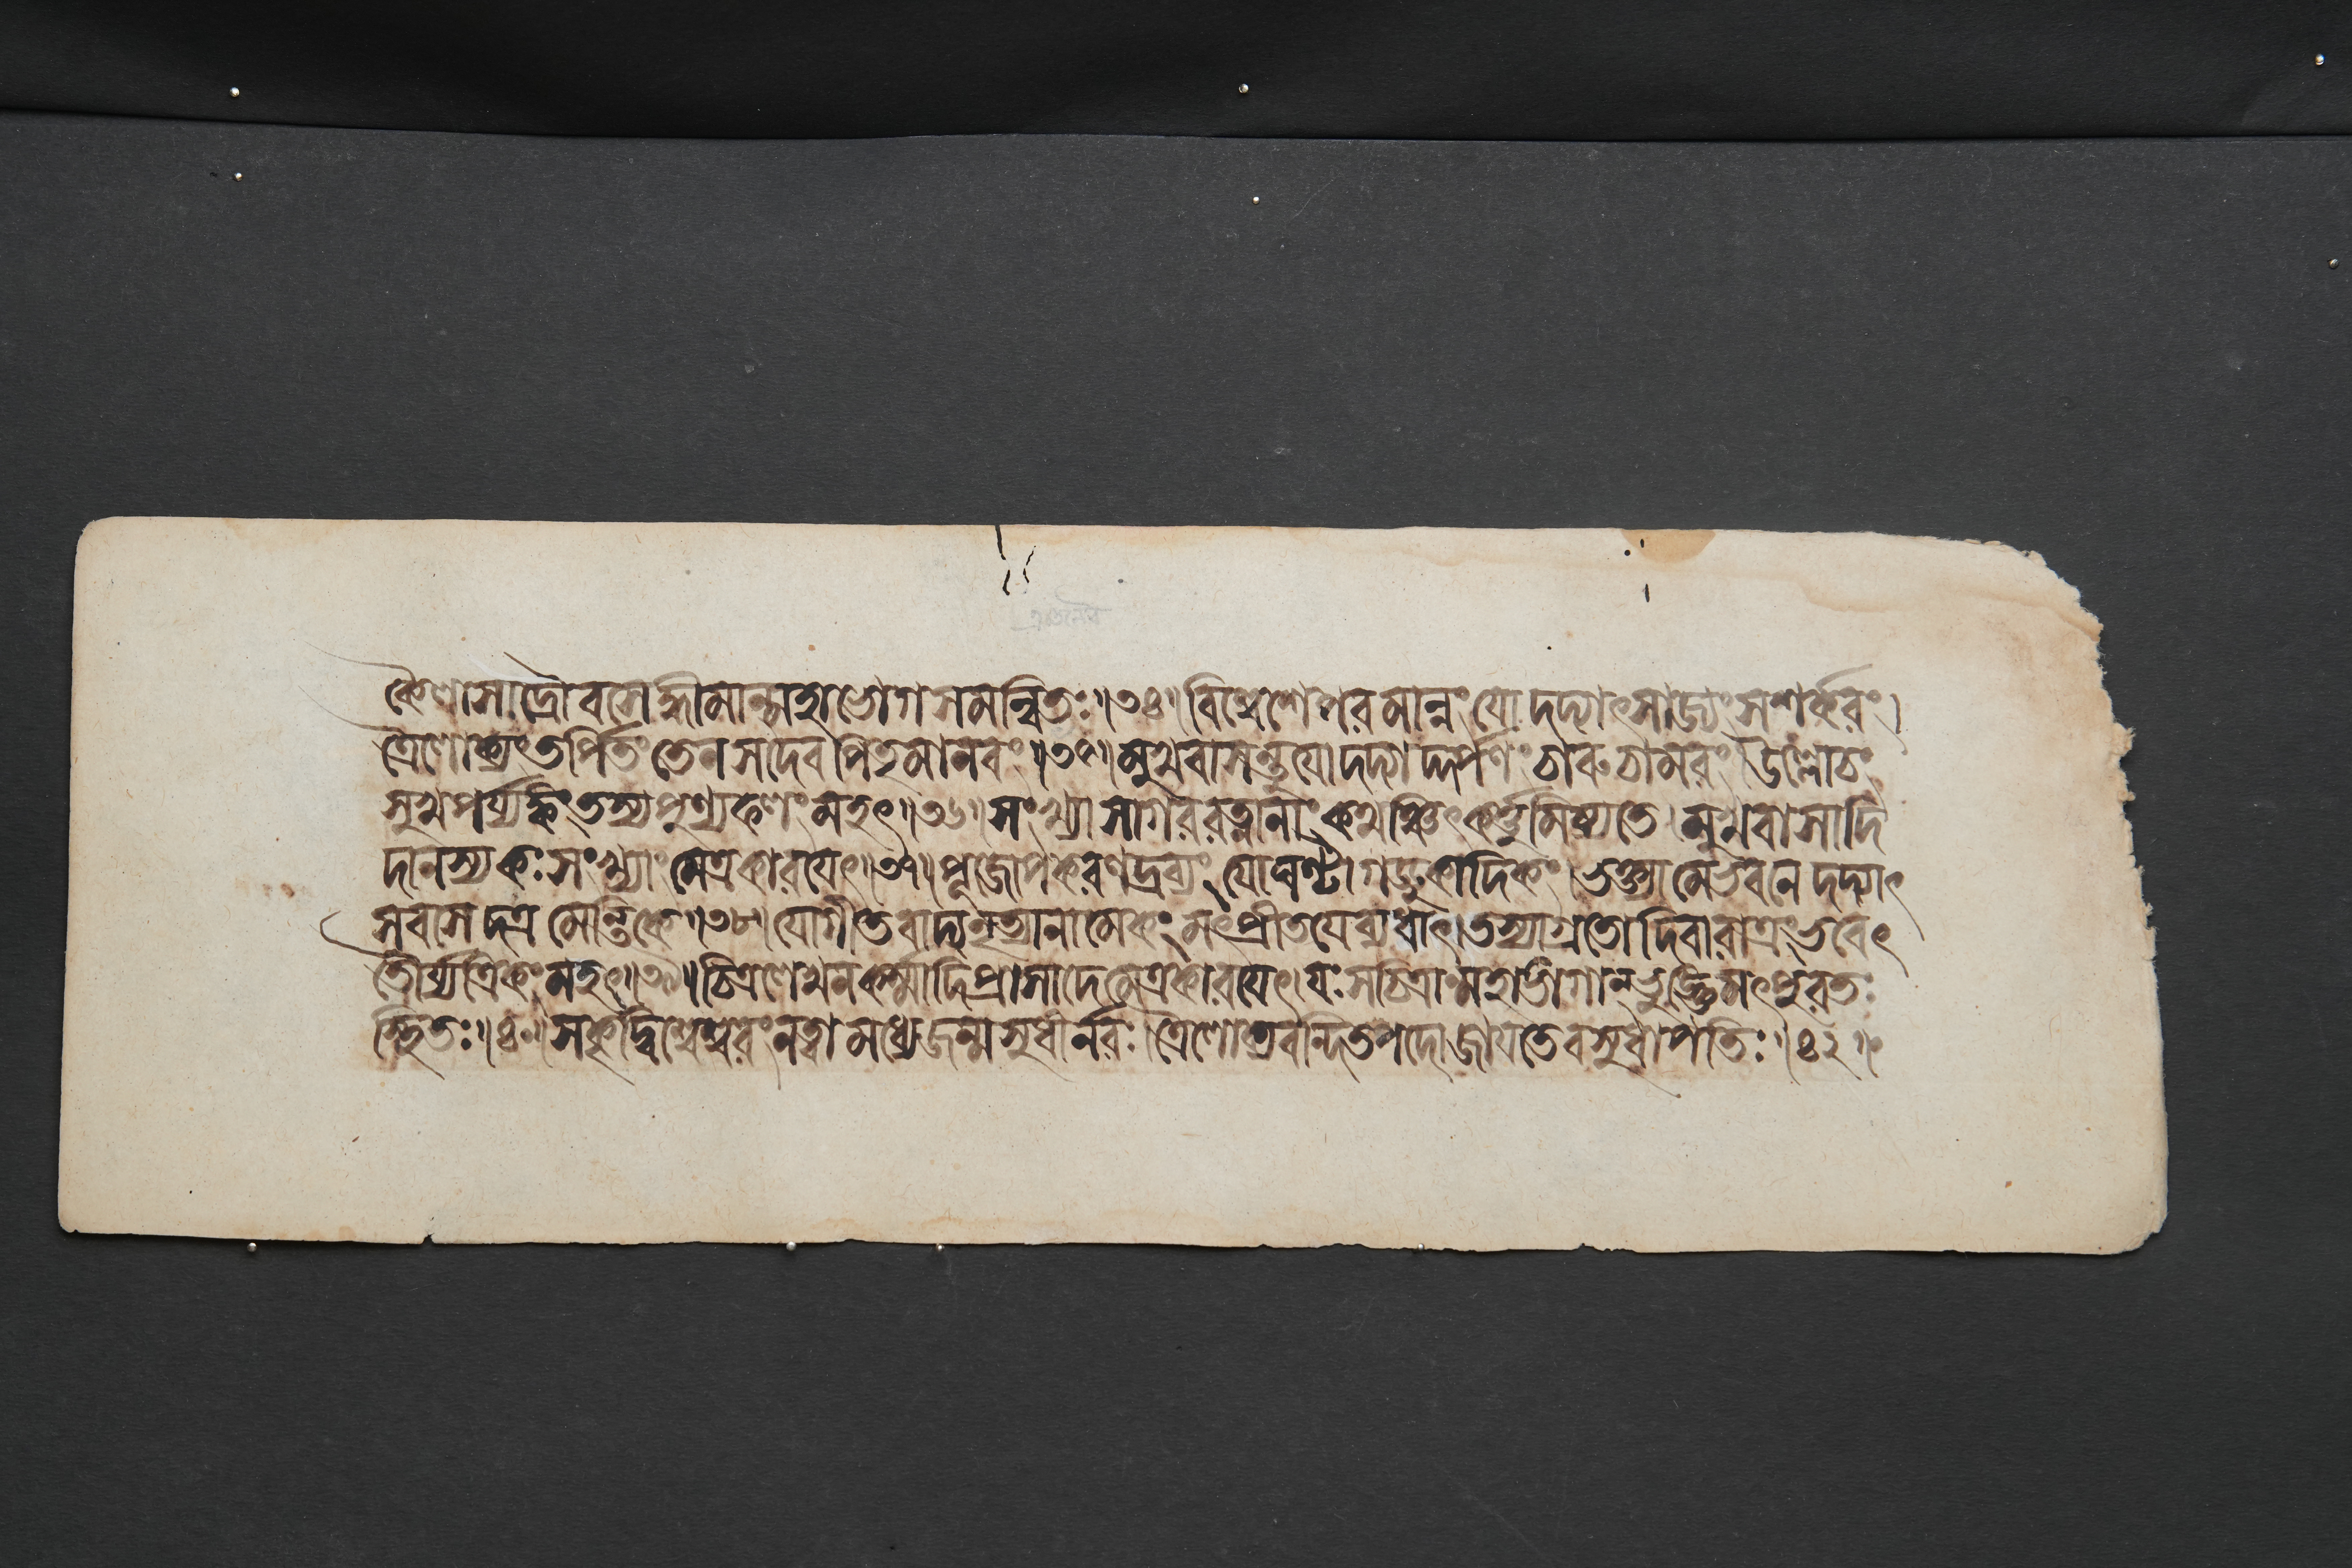 কৈলাসাদ্রৌ বসেদ্ধীমান্মহাভোগসমন্বিতঃ॥৩৪॥ বিশ্বেশে পরমান্নং যো দদ্যাৎসাজ্যং সশর্করং।
ত্রৈলোক্যং তর্পিতং তেন সদেবপিতৃমানবং॥৩৫॥ মুখবাসন্তু যো দদ্যাদ্দর্পণং চারুচামরং। উল্লোচং
সুখপর্য্যঙ্কং তস্য পুণ্যফলং মহৎ॥৩৬॥ সংখ্যা সাগররত্নানাং কথঞ্চিৎকর্ত্তুমিষ্যতে। মুখবাসাদি
দানস্য কঃ সংখ্যাং মেত্র কারয়েৎ॥৩৭॥ পূজোপকরণদ্রব্যং যো ঘণ্টাগড্ডুকাদিকং। ভক্ত্যা মে ভবনে দদ্যাৎ
স বাসেদত্র মেন্তিকে॥৩৮॥ যো গীতবাদ্যনৃত্যানামেকং মৎপ্রীতয়ে ব্যধাৎ। তস্যাগ্রতো দিবারাত্রং ভবেৎ
তৌর্য্যত্রিকং মহৎ॥৩৯॥ চিত্রলেখনকর্ম্মাদি প্রাসাদে মেত্র কারয়েৎ। যঃ স চিত্রাংমহাভোগান্ ভুঙ্ক্তে মৎপুরতঃ
স্থিতঃ॥৪০॥ সকৃদ্বিশ্বেশ্বরং নত্বা মধ্যে জন্ম সুধীর্নরঃ। ত্রৈলোক্যবন্দিতপদো জায়তে বসুধাপতিঃ॥৪১॥